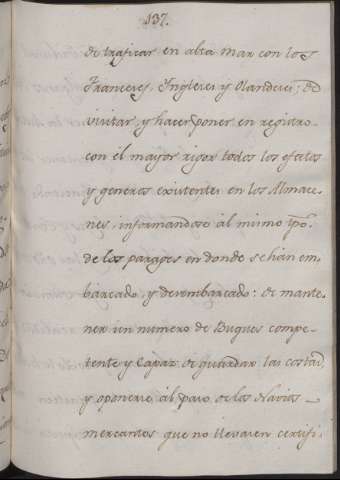 137.
de traficar en alta mar con los
Franceses, Ingleses y Olandeses; de
visitar, y hacer poner en registro
con el mayor rigor todos los efectos
y generos existentes en los Almace-
nes informandose al mismo tpo.
de los parages en donde se han em-
barcado, y desembarcado: de mante-
ner un numero de Buques compe-
tente y capaz de guardar las costas,
y oponerse al paso de los Navios
mercantes que no llevasen certifi-